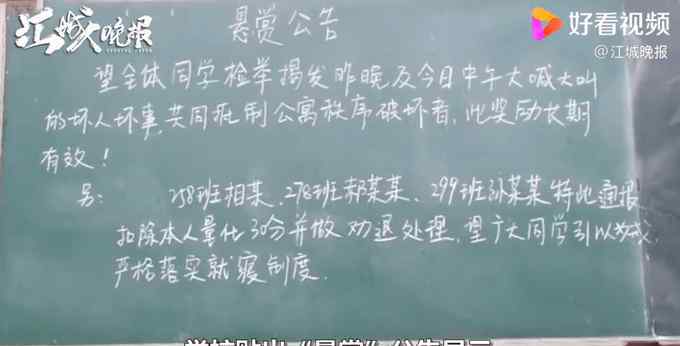 江城晚报
悬赏公告
好看视频
@江城晚报
望全体同学检举揭发昨晚及今日中午大喊大叫
的坏人坏事,共同抵制公寓秩序破坏者,此奖励长期
有效!
另: 258班相某、278班郝某某、299班孙某某特此通报,
扣除本人量化30分并做劝退处理,望广大同学引以为戒,
严格落实就寝制度.
学校贴出“悬赏”公告显示